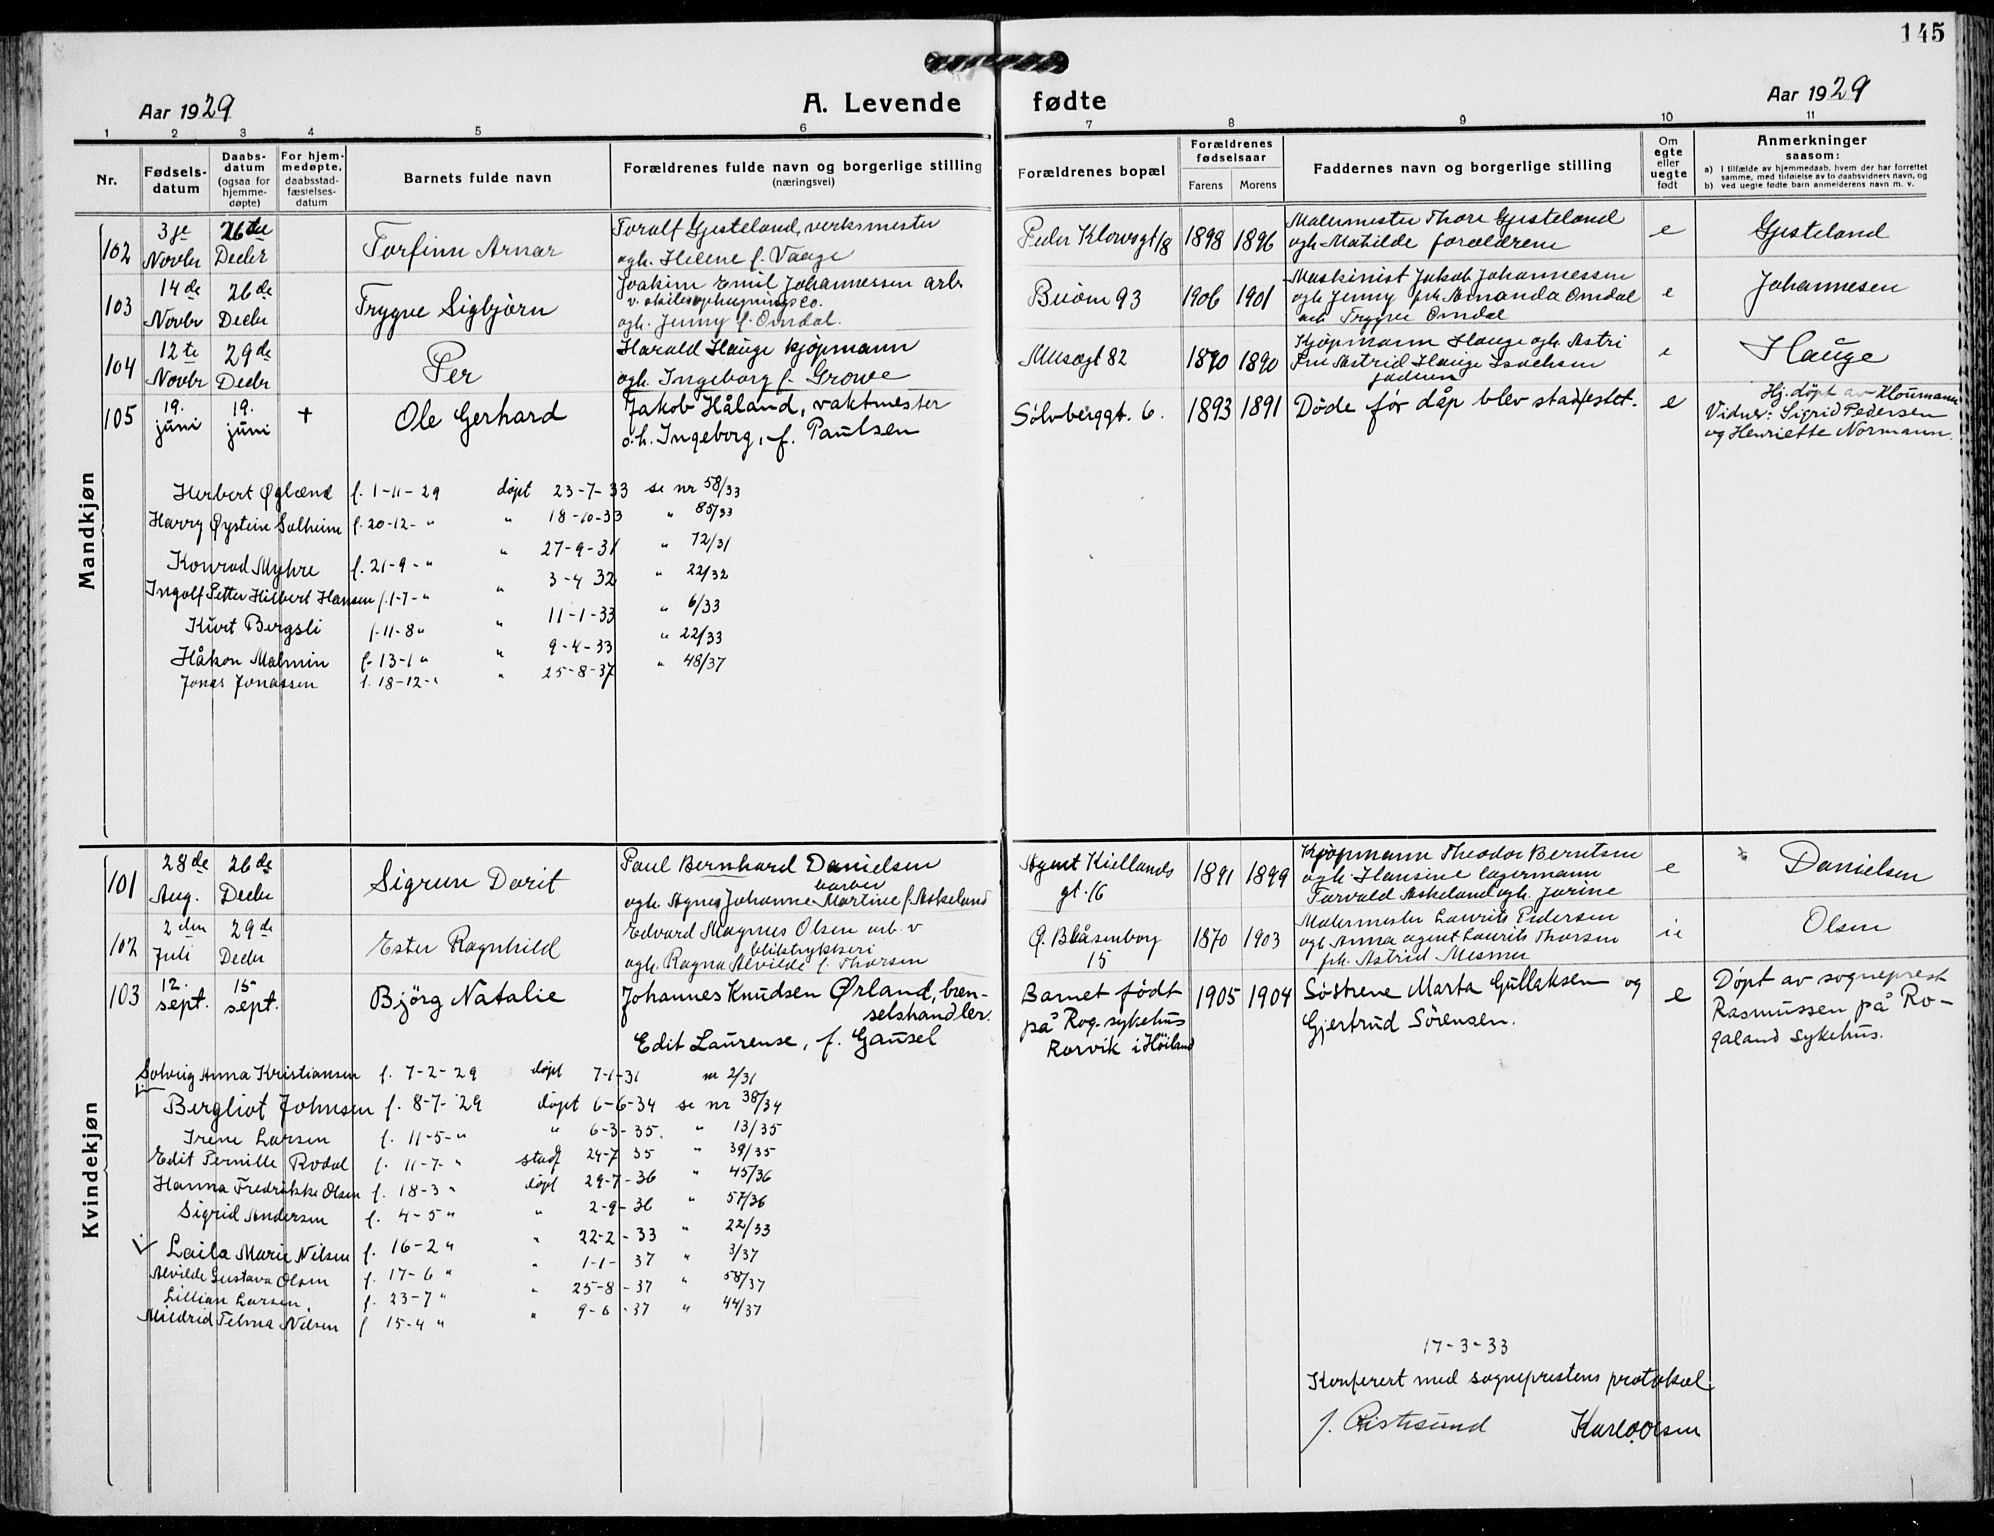 145
Aar 1929
A. Levende fødte
Aar 1929
1 2 3 4 5 6 7 8 9 10 11
Nr.
Fødsels-
datum
Daabs-
datum
(ogsaa for
hjemme-
døpte)
For hjem-
medøpte,
daabsstad-
fæstelses-
datum
Barnets fulde navn
Forældrenes fulde navn og borgerlige stilling
(næringsvei)
Forældrenes bopæl
Forældrenes
fødselsaar
Farens
Morens
Faddernes navn og borgerlige stilling
Om
egte
eller
uegte
født
Anmerkninger
saasom:
a) I tilfælde av hjemmedaab, hvem der har forrettet
samme, med tilføielse av to daabsvidners navn, og
b) ved uegte fødte barn anmelderens navn m. v.
Mandkjøn
102
3je
Novbr
26de
Decbr
Torfinn Arnar
Toralf Gjesteland, verksmester
ogh. Helene f. Vaage
Peder Klowsgt 18
1898 1896
Malermester Thore Gjesteland
ogh. Mathilde forældrene
e
Gjesteland
103
14de
Novbr
26de
Decbr
Trygve Sigbjörn
Joakim Emil Johannessen arb.
v. skibsophugningsco.
ogh. Jenny f. Omdal.
Buøen 93
1906 1901
Maskinist Jakob Johannessen
ogh Jenny frk Amanda Omdal
arb Trygve Omdal
e
Johannesen
104
12te
Novbr
29de
Decbr
Per
Harald Hauge kjøpmann
ogh. Ingeborg f. Growe
Musegt 82
1890 1890
Kjøpmann Hauge ogh. Astri
Fru Astrid Hauge Isachsen
e
Hauge
105
19.
juni
19.
juni
+
Ole Gerhard
Jakob Håland, vaktmester
o.h. Ingeborg, f. Paulsen
Sølvberggt. 6.
1893 1891
Døde før dåp blev stadfestet.
e
Hj.døpt av Kloumann
Vidner: Sigrid Pedersen
og Henriette Normann.
Herbert Øglænd f. 1-11-29 døpt 23-7-33 se nr 58/33
Harry Øystein Solheim f. 20-12-" " 18-10-33 " 85/33
Konrad Myhre f. 21-9-" " 27-9-31 " 72/31
Ingolf Petter Hilbert Hansen f. 1-7-" " 3-4 32 " 22/32
Kurt Bergsli f. 11-8" " 11-1-33 " 6/33
Håkon Malmin f. 13-1" " 9-4-33 " 22/33
Jonas Jonassen f. 18-12-" " 25-8-37 " 48/37
Kvindekjøn
101
28de
Aug.
26de
Decbr
Sigrun Dorit
Paul Bernhard Danielsen
barber
ogh. Agnes Johanne Martine f. Askeland
Agent Kiellands
gt. 16
1891 1899
Kjøpmann Theodor Berntsen
ogh. Hansine Lagermann
Torvald Askeland ogh. Jorine
e
Danielsen
102
2den
Juli
29de
Decbr
Ester Ragnhild
Edvard Magnus Olsen arb. v
bliktrykkeri
ogh. Ragna Alvilde f. Thorsen
G. Blåsenborg
15
1870 1903
Malermester Laurits Pedersen
ogh. Anna agent Laurits Thorsen
frk. Astrid Mesner
Olsen
103
12.
sept.
15
sept.
Bjørg Natalie
Johannes Knudsen Ørland, bren-
selshandler.
Edit Laurense, f. Gausel
Barnet født
på Rog. sykehus
Rorvik i Høiland
1905 1904
Søstrene Marta Gullaksen og
Gjertrud Sørensen.
e
Døpt av sogneprest
Rasmussen på Ro-
galand Sykehus.
Solveig Anna Kristiansen f. 7-2-29 døpt 7-1-31 nr 2/31
Bergliot Johnsen f. 8-7-29 døpt 6-6-34 se nr 38/34
Irene Larsen f. 11-5-" " 6-3-35. " 13/35
Edit Pernille Rodal f. 11-7-" stadf 24-7 35 " 39/35
Hanna Fredrikke Olsen f. 18-3 " døpt 29-7-36 " 45/36
Sigrid Andersen f. 4-5" " 2-9-36 " 57/36
Laila Marie Nilsen f. 16-2" " 22-2-33 " 22/33
Alvilde Gustava Olsen f. 17-6" " 1-1-37 " 3/37
Lillian Larsen. f. 23-7" " 25-8-37 " 58/37
Mildrid Telma Nilsen f 15-4" " 9-6-37 " 44/37
17-3-33
Konferert med sogneprestens protokol
Karl Olsen